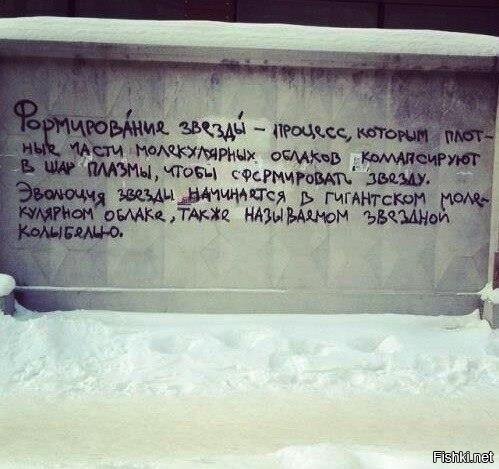 Формирова́ние звезды́ – процесс, которым плот-
ные части молекулярных облаков коллапсируют
в шар плазмы, чтобы сформировать звезду.
Эволюция звезды начинается в гигантском моле-
кулярном облаке, также называемом звездной
колыбелью.
Fishki.net